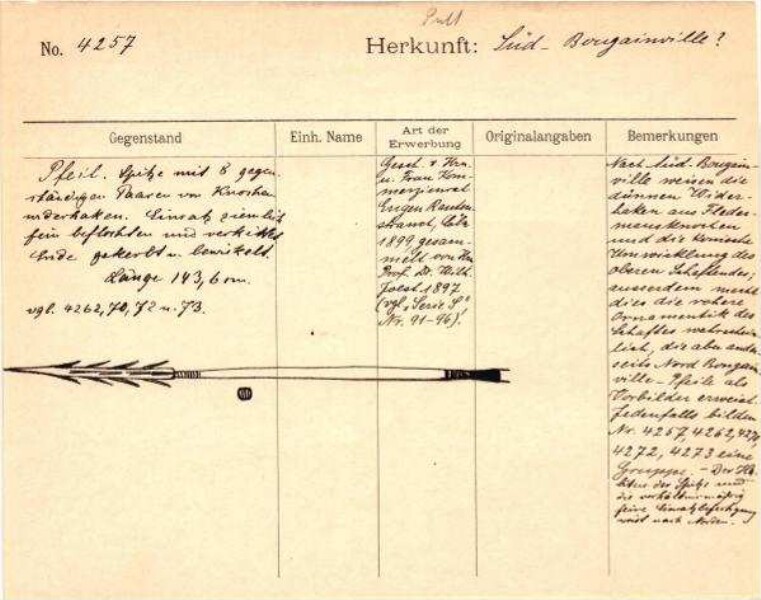 Pult
No. 4257
Herkunft: Süd- Bougainville?
Gegenstand
Einh. Name
Art der
Erwerbung
Originalangaben
Bemerkungen
Pfeil. Spitze mit 8 gegen-
ständigen Paaren von Knochen
widerhaken. Einsatz ziemlich
fein beflochten und verkittet
Ende gekerbt u. bewickelt.
Länge 143,6 cm.
vgl. 4262, 70, 72 u. 73.
Gesch. v. Hrn.
u. Frau Kom-
merzienrat
Eugen Rauten-
strauch, Cöln
1899, gesam-
melt von Hrn
Prof. Dr. Wilh.
Joest 1897
(vgl. "Serie S"
Nr. 91-96)!
Nach Süd-Bougain-
ville weisen die
dünnen Wider-
haken aus Fleder-
mausknochen
und die konische
Umwicklung des
oberen Schaftendes;
ausserdem macht
dies die rohere
Ornamentik des
Schaftes wahrschein-
lich, die aber ander-
seits Nord Bougain-
ville-Pfeile als
Vorbilder erweist.
Jedenfalls bilden
Nr. 4257, 4262, 4270,
4272, 4273 eine
Gruppe. - Der Ha-
bitus der Spitze und
die verhältnismäßig
feine Einsatzbefestigung
weist nach Norden.